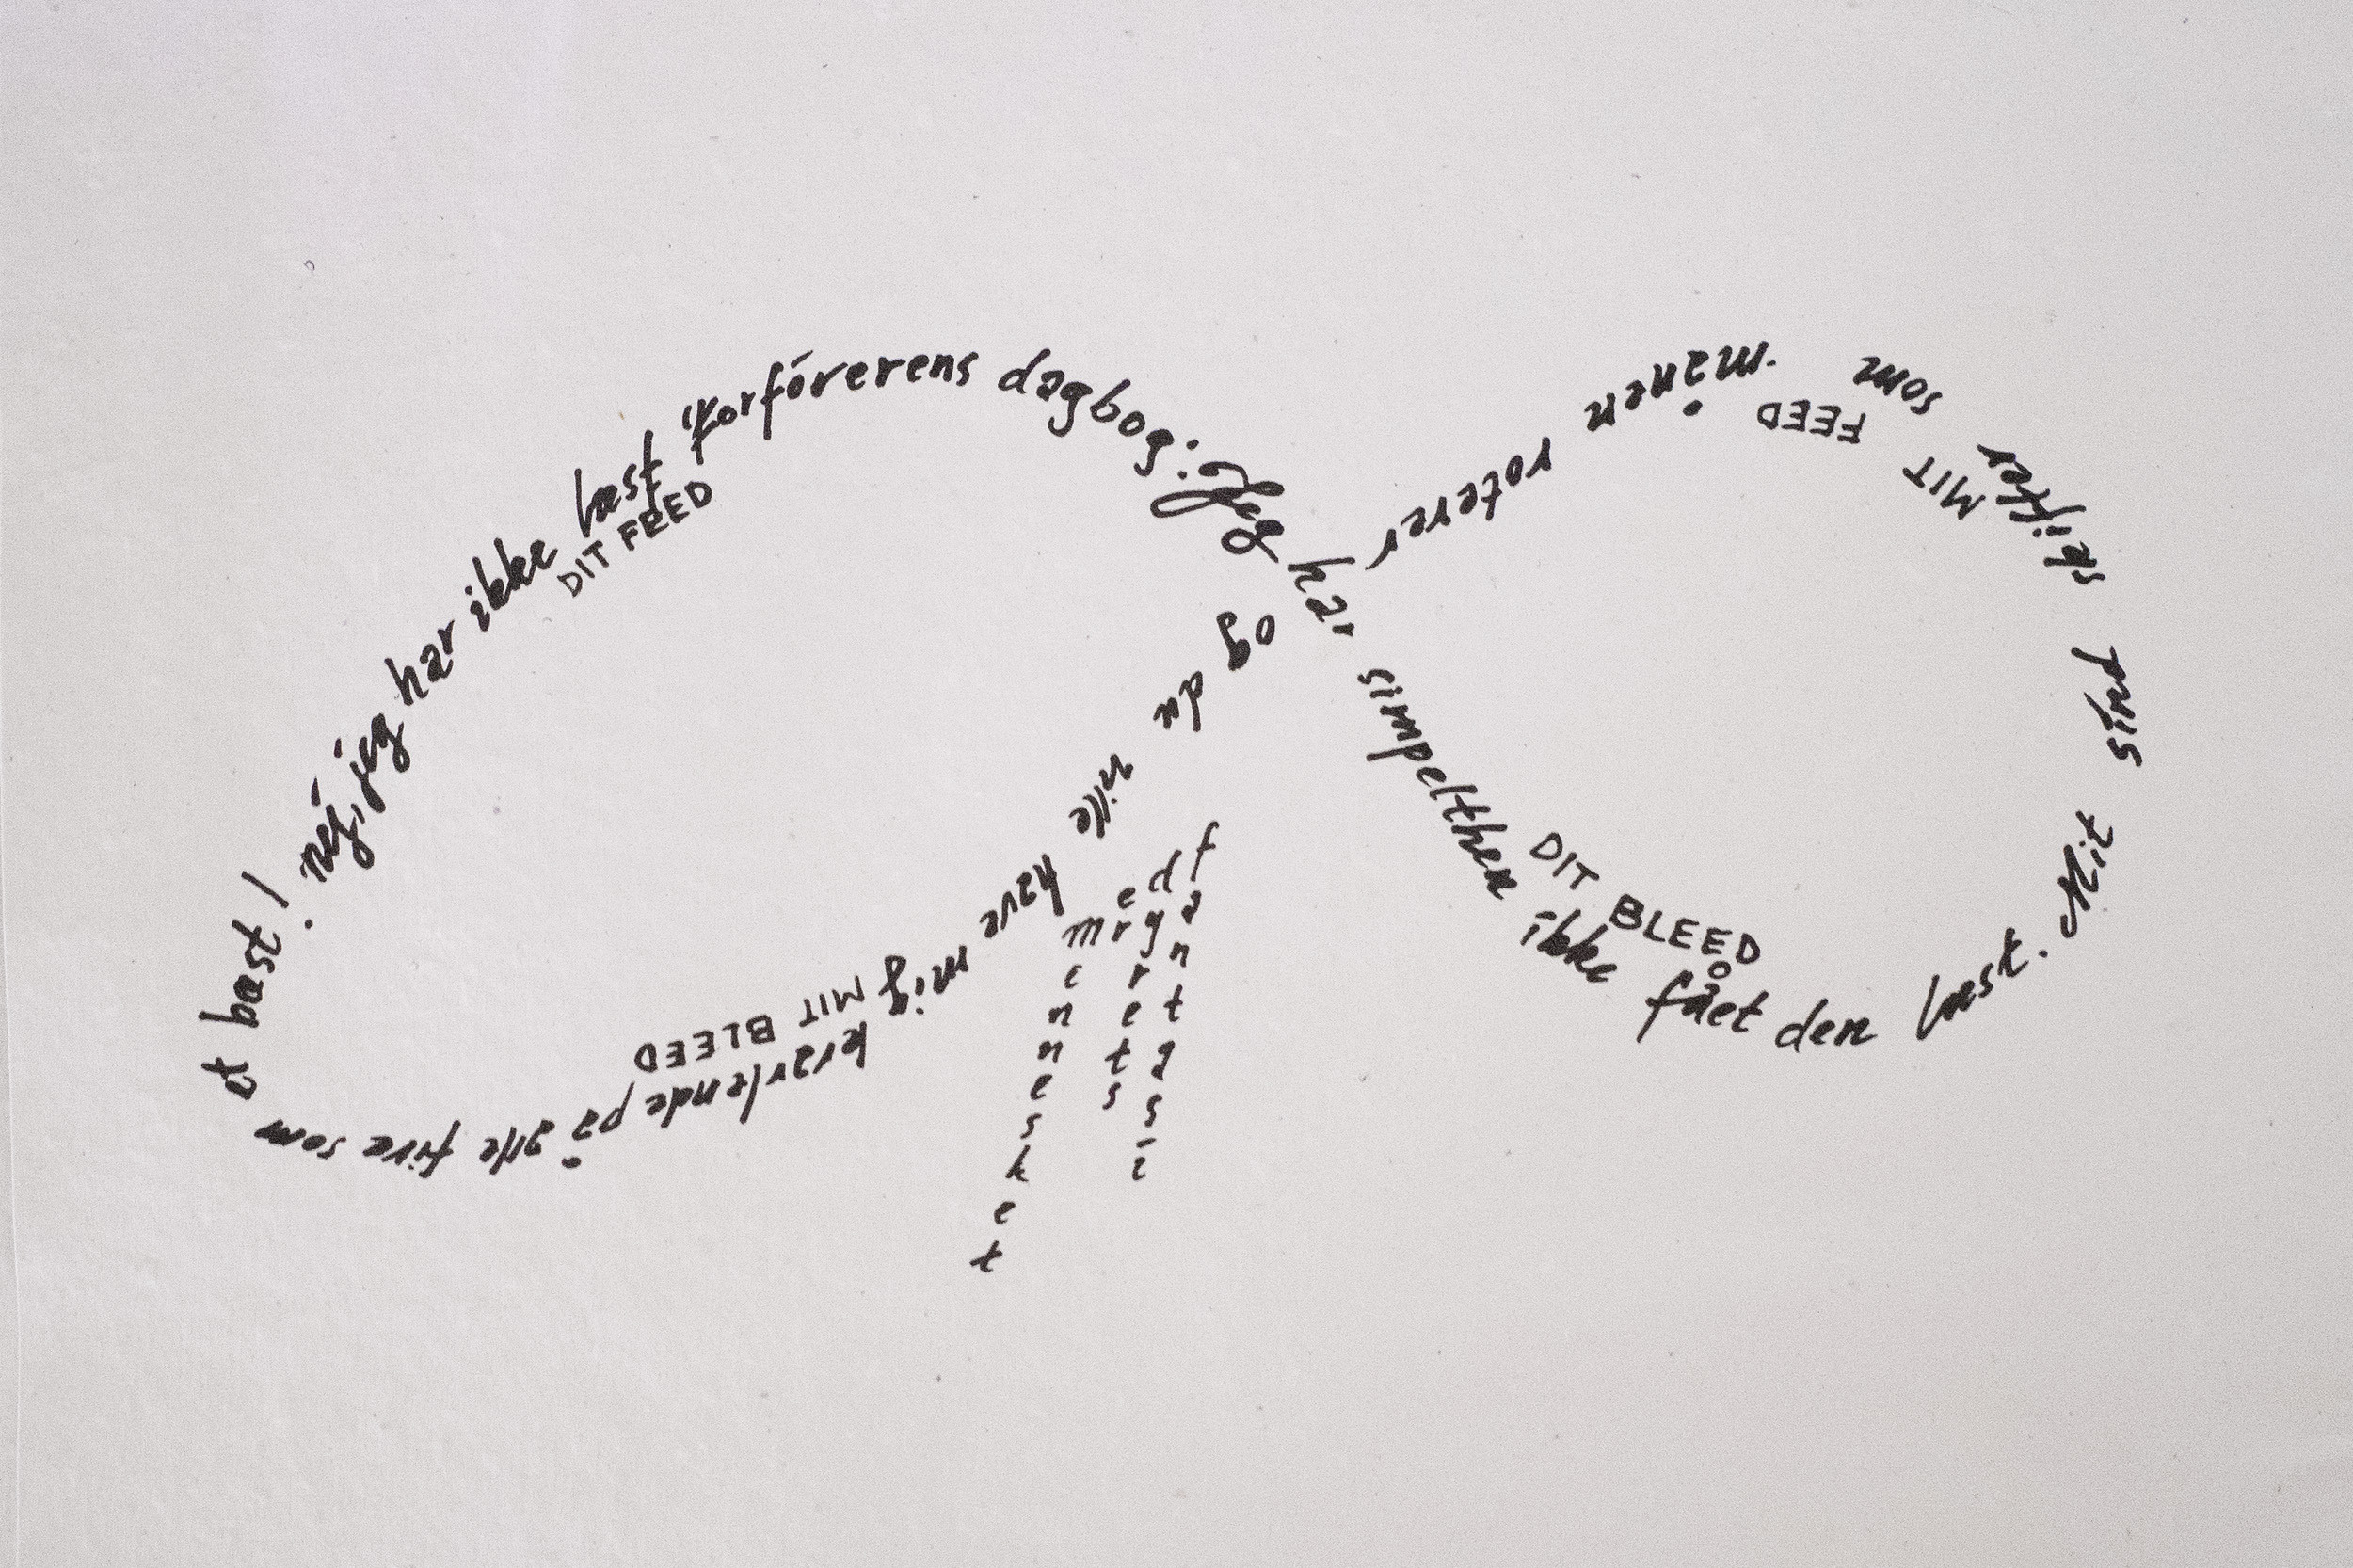 nej, jeg har ikke læst "Forførerens dagbog": Jeg har simpelthen ikke fået den læst. Mit sind skifter som månen roterer og du ville have mig kravlende på alle fire som et bæst!
DIT FEED
DIT BLEED
MIT FEED
MIT BLEED
mennesket
er
dyrets
fantasi